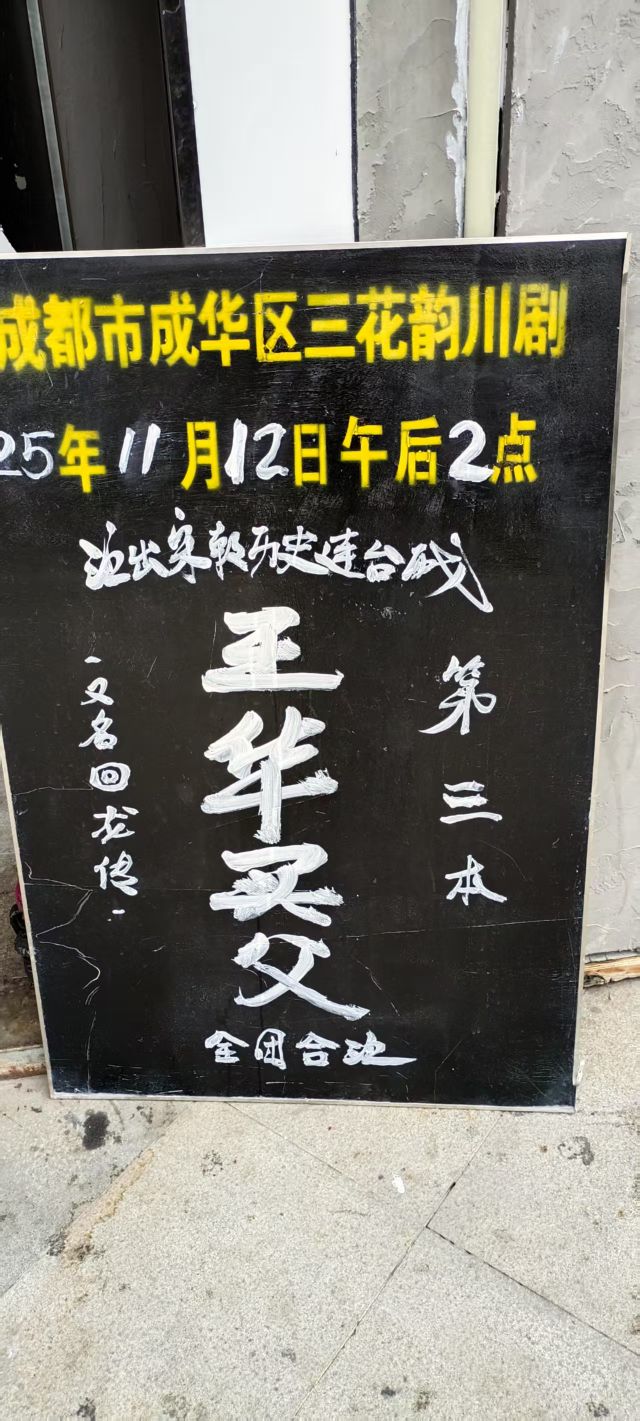 成都市成华区三花韵川剧
25年11月12日午后2点
演出宋朝历史连台戏
第三本
王华买父
·又名回龙传·
全团合演